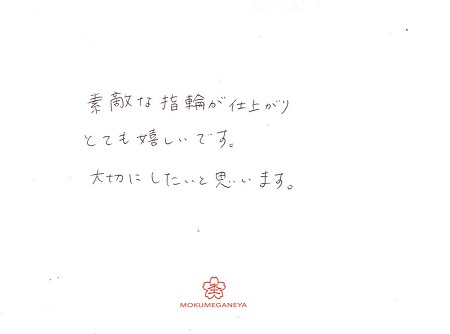 素敵な指輪が仕上がり
とても嬉しいです。
大切にしたいと思います。
MOKUMEGANEYA